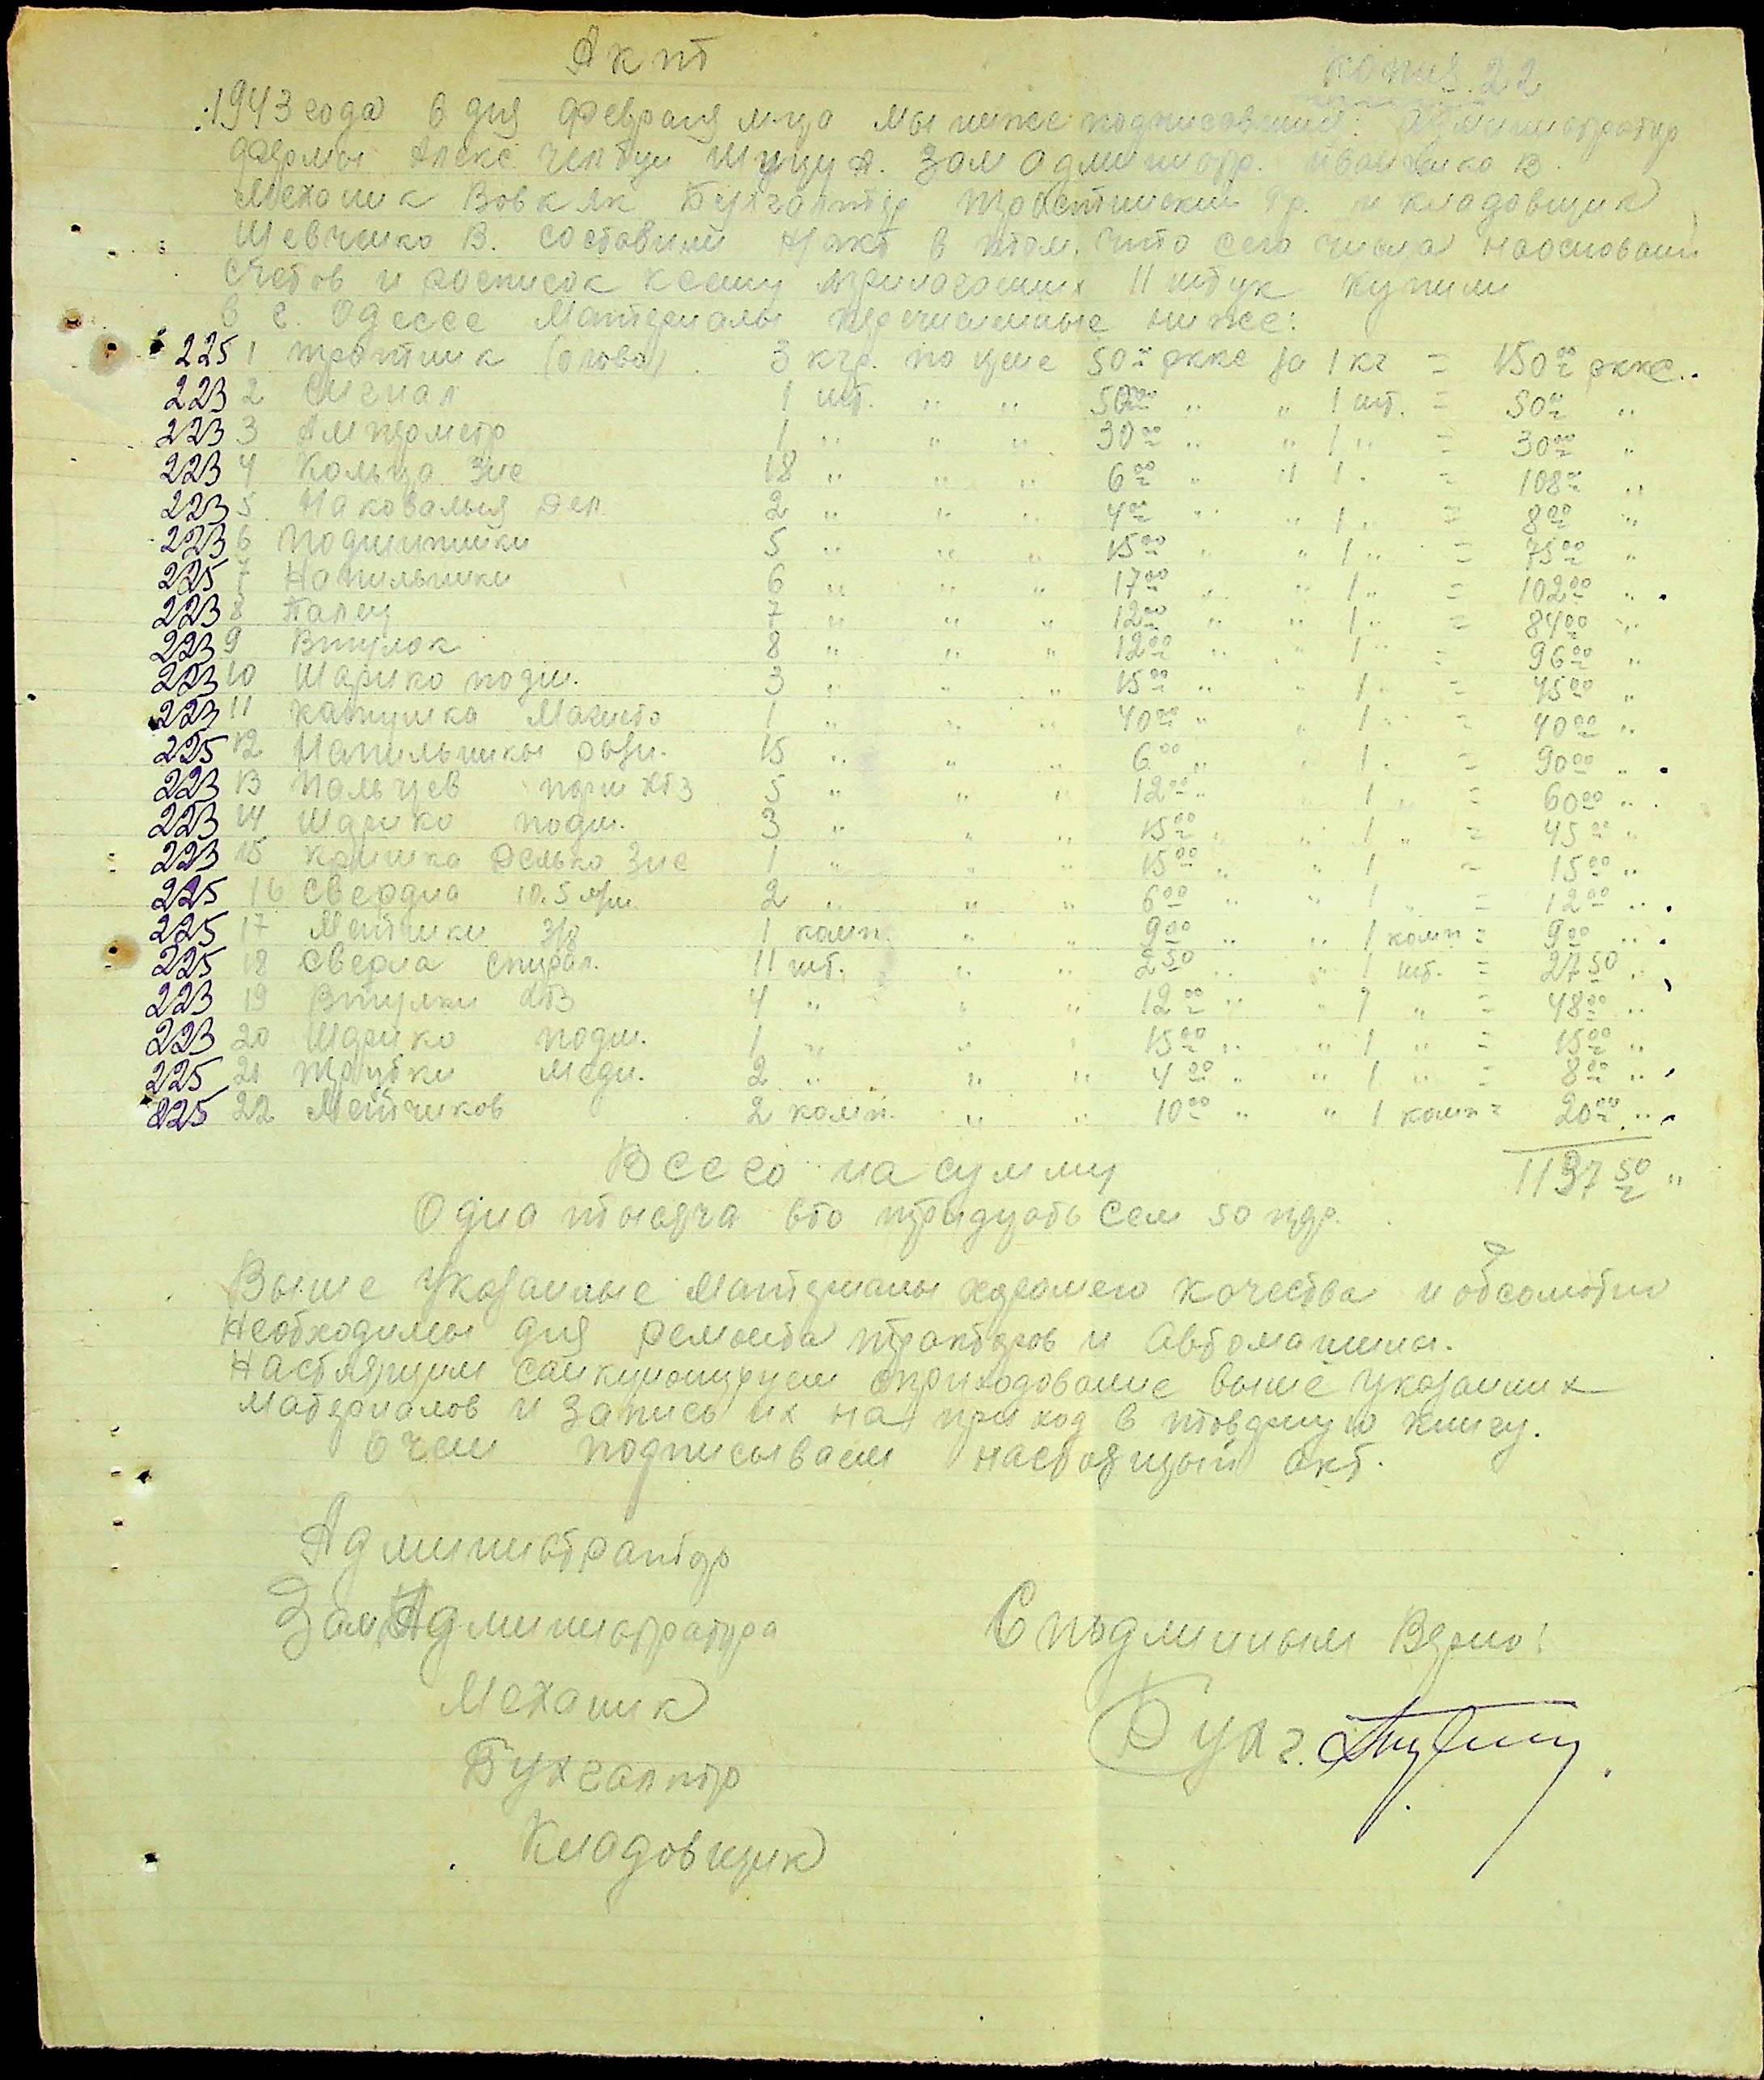 Акт
копия 22
1943 года 6 дня февраля м-ца мы ниже подписавшиеся: Администратор
фермы Алекс. Шуцу А. Зам администр. Иваненко В.
Механик Вовк Як Бухгалтер Гр. и кладовщик
Шевченко В. составили Акт в том, что сего числа на основании
счетов и росписок к сему прилагаемых 11 штук купили
в г. Одессе Материалы перечисленные ниже:
225 1 третник (олово) 3 кгр. по цене 50 00 ркке за 1 кг = 150 00 ркке..
223 2 Сигнал 1 шт. " " 50 00 " " 1 шт. = 50 00 "
223 3 Амперметр 1 " " " 30 00 " " 1 " = 30 00 "
223 4 Кольца Зис 18 " " " 6 00 " " 1 " = 108 00 "
223 5 Наковальня Дел 2 " " " 4 00 " " 1 " = 8 00 "
223 6 Подшипники 5 " " " 15 00 " " 1 " = 75 00 "
225 7 Напильники 6 " " " 17 00 " " 1 " = 102 00 "
223 8 Палец 7 " " " 12 00 " " 1 " = 84 00 "
223 9 Втулок 8 " " " 12 00 " " 1 " = 96 00 "
223 10 Шарико подш. 3 " " " 15 00 " " 1 " = 45 00 "
223 11 катушка Магнето 1 " " " 40 00 " " 1 " = 40 00 "
225 12 Напильники разн. 15 " " " 6 00 " " 1 " = 90 00 "
223 13 Пальцев порш ХТЗ 5 " " " 12 00 " " 1 " = 60 00 "
223 14 Шарико подш. 3 " " " 15 00 " " 1 " = 45 00 "
223 15 Делько Зис 1 " " " 15 00 " " 1 = 15 00 "
225 16 Сверла 10.5 м/м 2 " " " 6 00 " " 1 " = 12 00 "
225 17 Метчики 3/8 1 комп. " " 9 00 " " 1 комп = 9 00 "
225 18 Сверла спирал. 11 шт. " " 2 50 " " 1 шт. = 27 50 "
223 19 Втулки ХТЗ 4 " " " 12 00 " " 1 " = 48 00 "
223 20 Шарико подш. 1 " " " 15 00 " " 1 " = 15 00 "
225 21 Трубки Медн. 2 " " " 4 00 " " 1 " = 8 00 "
225 22 Метчиков 2 комп. " " 10 00 " " 1 комп = 20 00 "
Всего на сумму 1137 50 "
Одна тысяча сто тридцать сем 50 пф.
Выше указанные Материалы хорошего качества и
Необходимы для ремонта тракторов и Автомашины.
Настоящим санкционируем оприходование выше указанных
материалов и запись их на приход в товарную книгу.
О чем подписываем настоящий акт.
Администратор
Зам. Администратора
С подлинным Верно:
Механик
Бухг.
Бухгалтер
Кладовщик